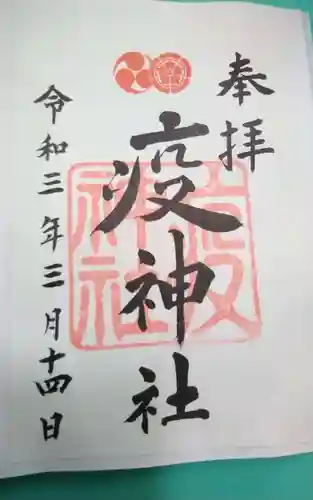 奉拝
疫神社
令和三年三月十四日
疫
神社